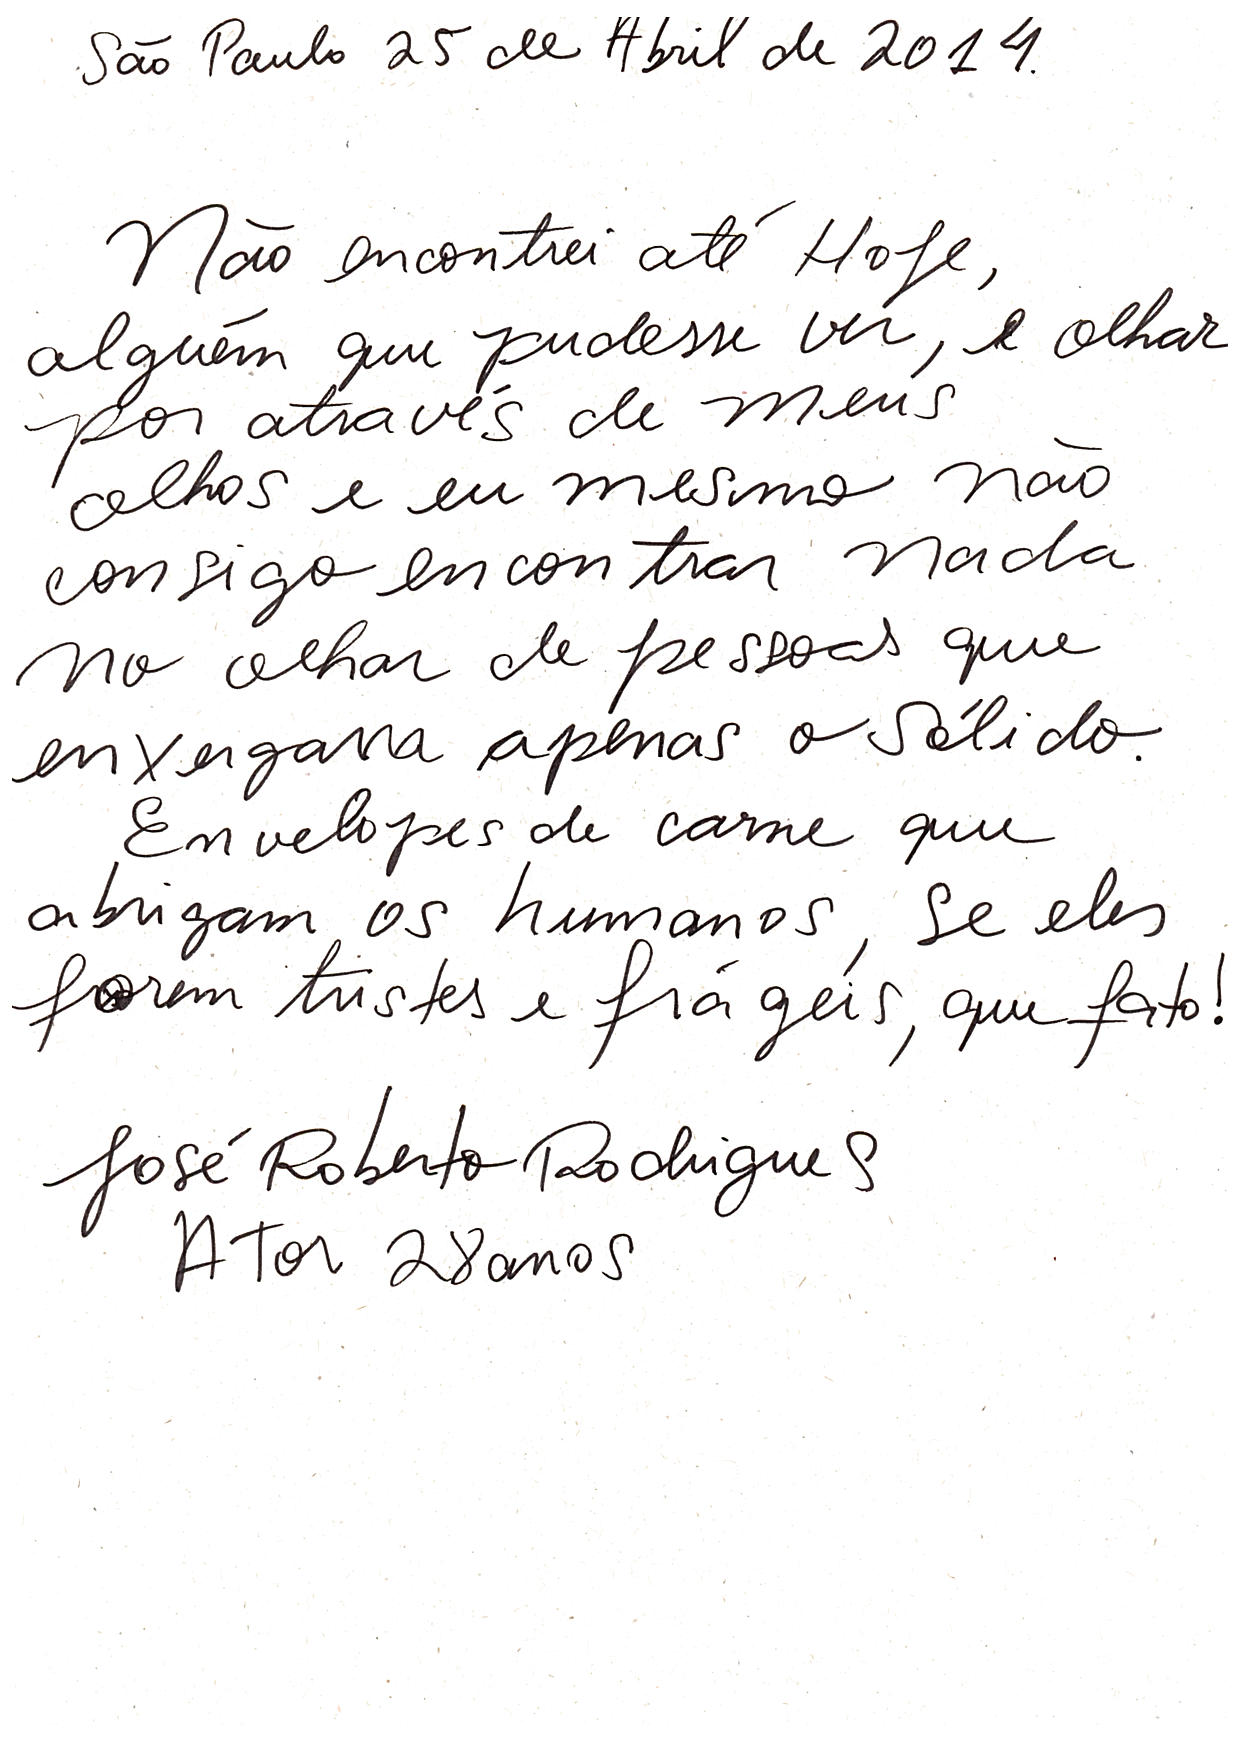 São Paulo 25 de Abril de 2014.
Não encontrei até Hoje,
alguém que pudesse ver, e olhar
por através de meus
olhos e eu mesmo não
consigo encontrar nada
no olhar de pessoas que
enxergava apenas o sólido.
Envelopes de carne que
abrigam os humanos, se eles
forem tristes e frágéis, que fato!
José Roberto Rodrigues
Ator 28 anos